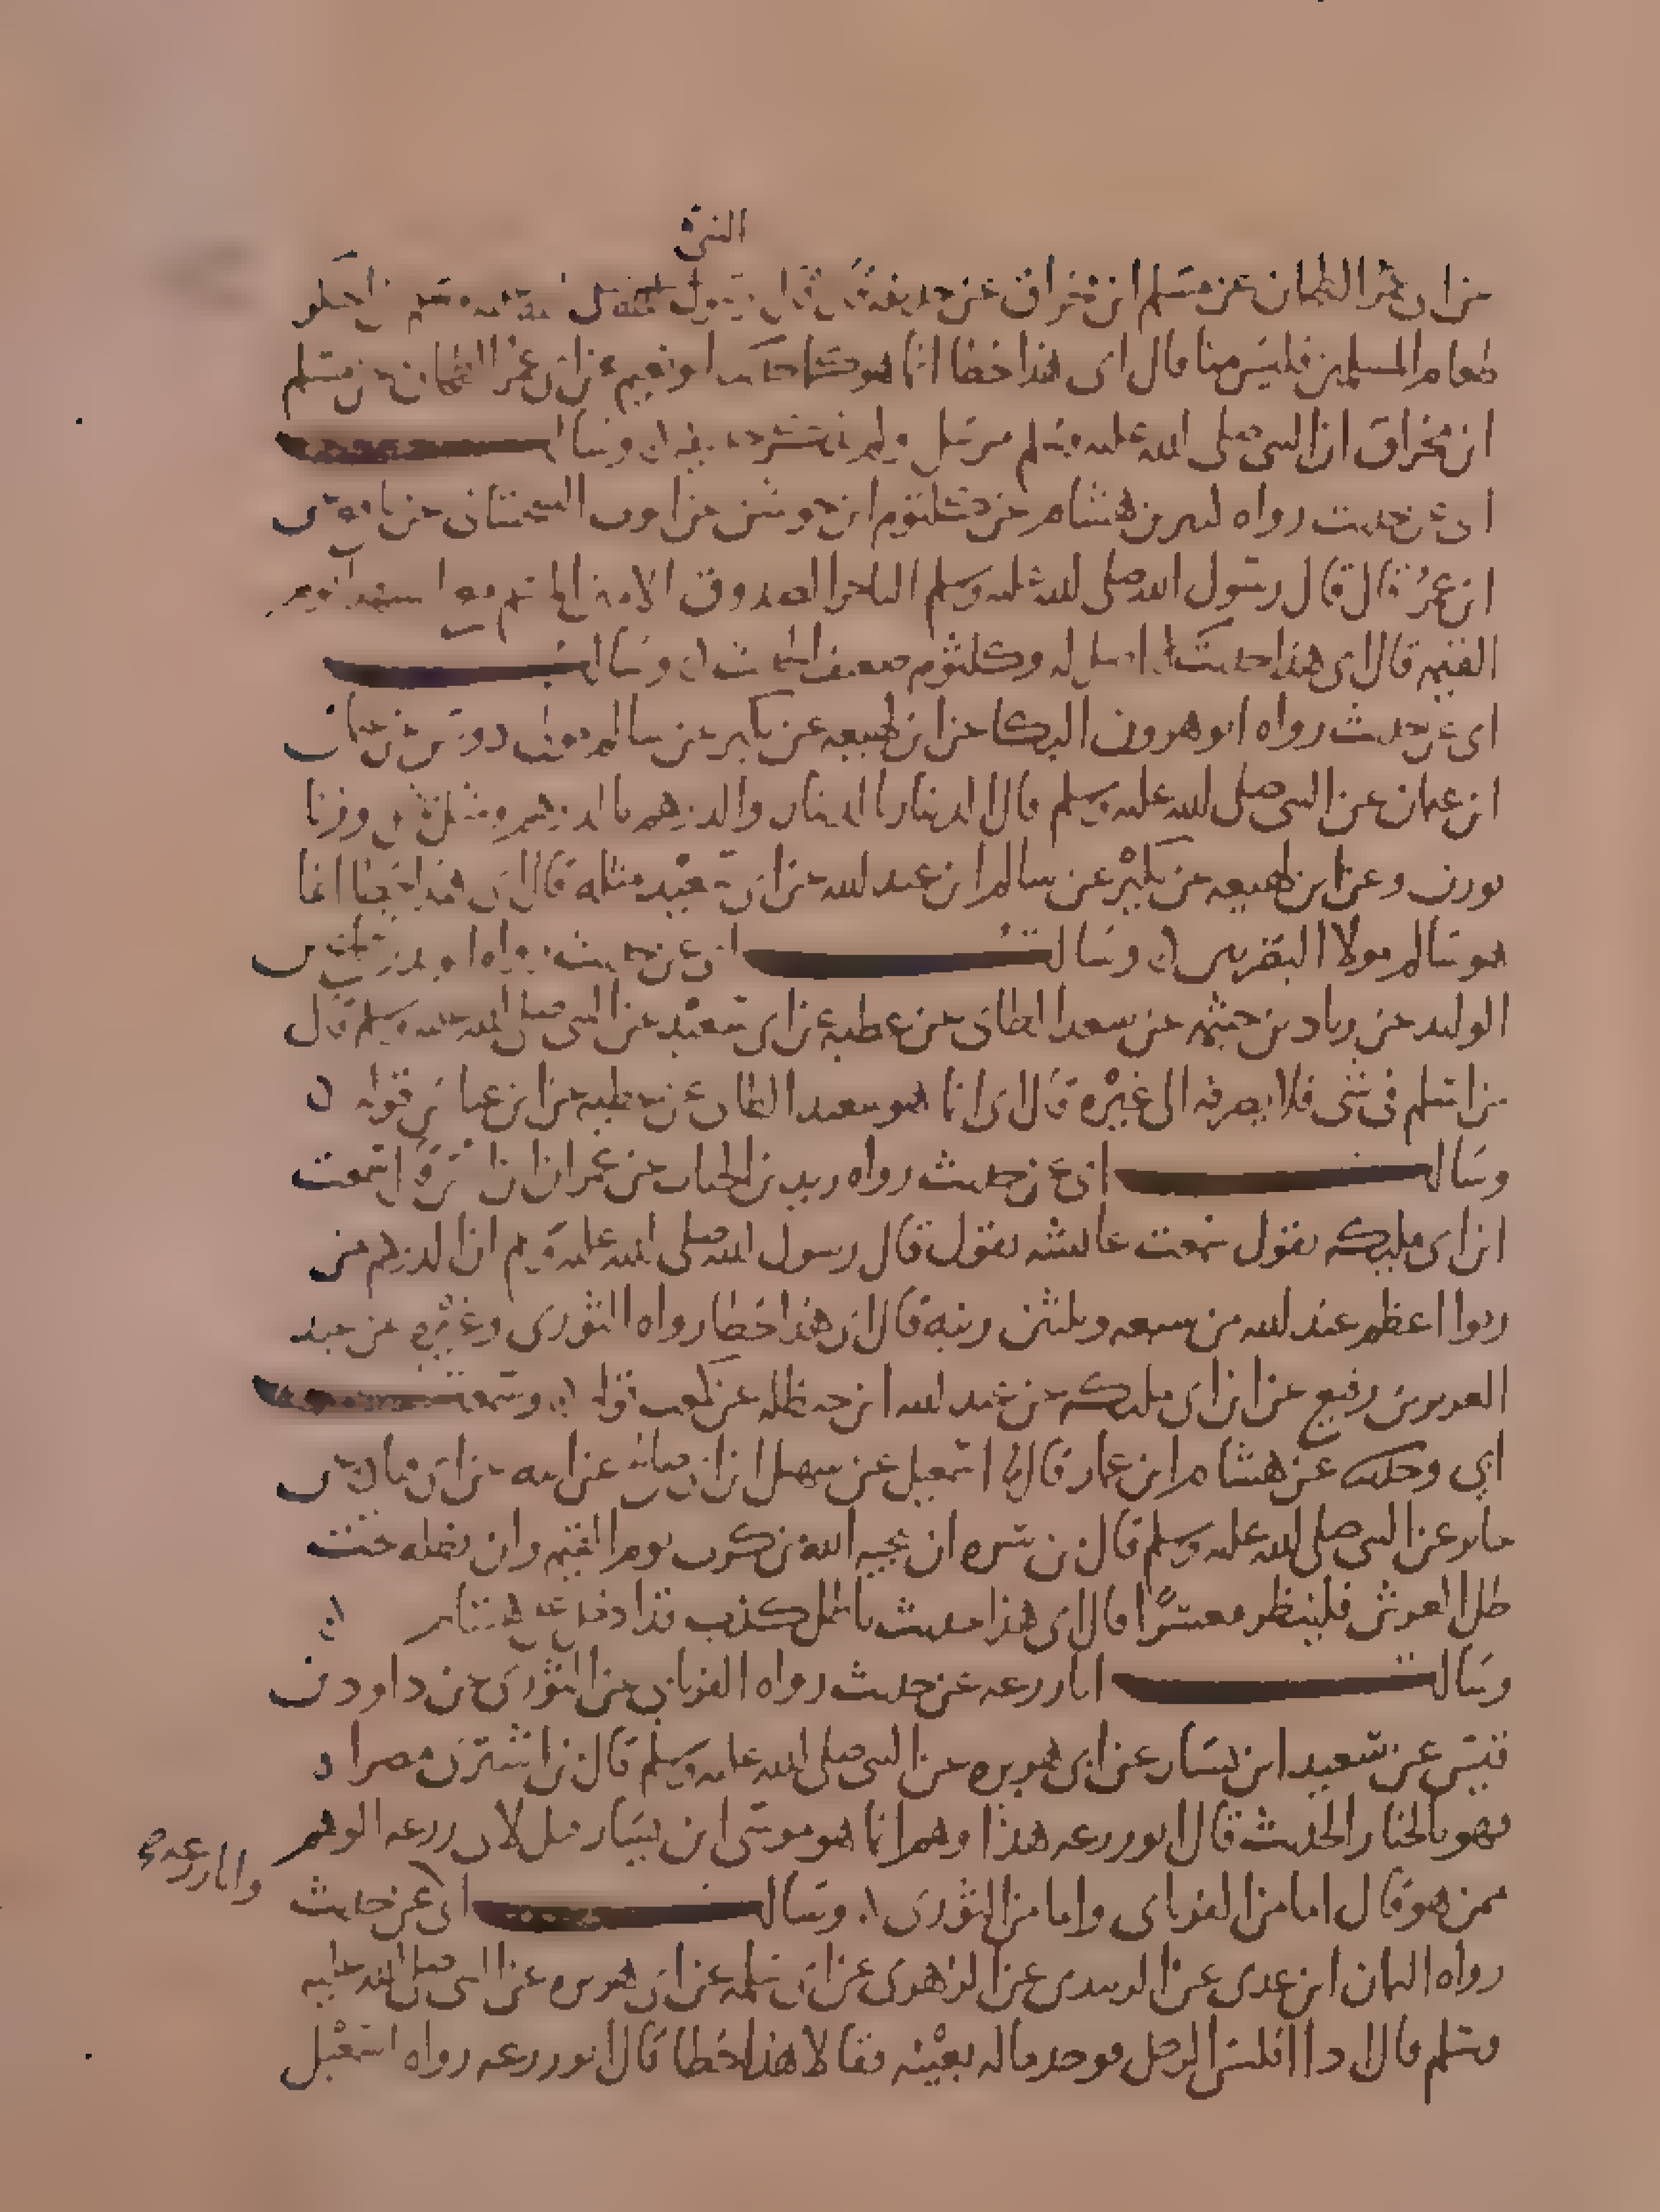 النبي
عن ابي عمر الطحان عن مسلم ابن مخراق عن حذيفة قال قال رسول الله صلى الله عليه وسلم من احتكر
طعام المسلمين فليس منا قال ابي هذا خطا انما هو كما حدثنا ابو نعيم عن ابي عمر الطحان عن مسلم
ابن مخراق ان النبي صلى الله عليه وسلم مرسل ولم يذكر حذيفة وسالت
ابي عن حديث رواه كثير بن هشام عن كلثوم ابن جوشن عن ايوب السختياني عن نافع عن
ابن عمر قال قال رسول الله صلى الله عليه وسلم التاجر الصدوق الامين المسلم مع الشهدا يوم
القيمة قال ابي هذا حديث لا اصل له وكلثوم ضعيف الحديث وسالت
ابي عن حديث رواه ابو هرون البكا عن ابن لهيعه عن بكير عن سالم مولى دوس عن عثمان
ابن عفان عن النبي صلى الله عليه وسلم قال الدينار بالدينار والدرهم بالدرهم مثل بمثل وزنا
بوزن وعن ابن لهيعه عن بكير عن سالم ابن عبد الله عن ابي سعيد مثله قال ابي هذا خطا انما
هو سالم مولا النصريين وسالت ابي عن حديث رواه ابو بدر شجاع بن
الوليد عن زياد بن خيثمه عن سعد الطاي عن عطيه عن ابي سعيد عن النبي صلى الله عليه وسلم قال
من اسلم في شي فلا يصرفه الى غيره قال ابي انما هو سعد الطاي عن عطيه عن ابن عباس قوله
وسالت ابي عن حديث رواه زيد بن الحباب عن عمران ابن انس قال سمعت
ابن ابي مليكه يقول سمعت عائشه تقول قال رسول الله صلى الله عليه وسلم ان الدرهم من
ربوا اعظم عند الله من سبعه وثلثين زنية قال ابي هذا خطا رواه الثوري وغيره عن عبد
العزيز بن رفيع عن ابن ابي مليكه عن عبد الله ابن حنظله عن كعب قوله وسمعت
ابي وحدثنا عن هشام ابن عمار قال نا اسمعيل عن سهيل ابن ابي صالح عن ابيه عن
جابر عن النبي صلى الله عليه وسلم قال من سره ان ينجيه الله من كرب يوم القيمه وان يظله تحت
ظل العرش فلينظر معسرا قال ابي هذا حديث باطل كذب قد ادخل على هشام
وسالت ابا زرعه عن حديث رواه الفريابي عن الثوري عن داود بن
قيس عن سعيد ابن يسار عن ابي هريره عن النبي صلى الله عليه وسلم قال من اشترى مصراه
فهو بالخيار الحديث قال ابو زرعه هذا وهم انما هو موسى ابن يسار قيل لابي زرعه الوهم
ممن هو قال اما من الفريابي واما من الثوري وسالت ابي عن حديث
وابا زرعه
رواه اليمان ابن عدي عن الزبيدي عن الزهري عن ابي سلمه عن ابي هريره عن النبي صلى الله عليه
وسلم قال اذا افلس الرجل فوجد ماله بعينه فقالا هذا خطا قال ابو زرعه رواه اسمعيل